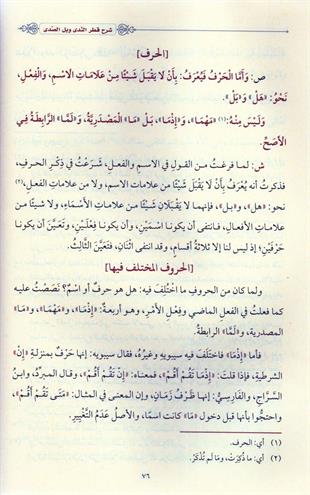 شرح قطر الندى وبل الصدى
[الحرف]
ص: وَأَمَّا الْحَرْفُ فَيُعْرَفُ: بِأَنْ لَا يَقْبَلَ شَيْئًا مِنْ عَلَامَاتِ الِاسْمِ، وَالْفِعْلِ،
نَحْوُ: «هَلْ» وَ«بَلْ».
وَلَيْسَ مِنْهُ:(١) «مَهْمَا»، وَ«إِذْمَا»، بَلْ «مَا» الْمَصْدَرِيَّةُ، وَ«لَمَّا» الرَّابِطَةُ فِي
الْأَصَحِّ.
ش: لما فرغتُ من القول في الاسم والفعل، شَرَعْتُ في ذِكْرِ الحرفِ،
فذكرتُ أنه يُعْرَفُ بِأَنْ لَا يَقْبَلَ شيئًا من علامات الاسم، ولا من علامات الفعل،(٢)
نحو: «هل»، و«بل»، فإنهما لا يَقْبَلَانِ شيئًا من علاماتِ الأَسْمَاءِ، ولا شيئًا من
علاماتِ الأفعالِ، فانتفى أن يكونا اسْمَيْنِ، وأن يكونا فِعْلَيْنِ، وتَعَيَّنَ أن يكونا
حَرْفَيْنِ؛ إذ ليس لنا إلا ثلاثةُ أقسامٍ، وقد انتفى اثْنَانِ، فتَعَيَّنَ الثَّالِثُ.
[الحروف المختلف فيها]
ولما كان من الحروفِ ما اخْتُلِفَ فيه: هل هو حرفٌ أو اسْمٌ؟ نَصَصْتُ عليه
كما فعلتُ في الفعلِ الماضي وفِعْلِ الأمْرِ، وهو أربعةٌ: «إِذْمَا»، و«مَهْمَا»، و«مَا»
المصدرية، و«لَمَّا» الرابطة.
فأما «إِذْمَا» فاختَلَفَ فيه سيبويه وغيرُهُ، فقال سيبويه: إنها حَرْفٌ بمنزلةِ «إِنْ»
الشرطية، فإذا قلتَ: «إِذْمَا تَقُمْ أَقُمْ»، فمعناه: «إِنْ تَقُمْ أَقُمْ»، وقال المبردُ، وابنُ
السَّرَّاجِ، والفارِسِيُّ: إنها ظَرْفُ زَمَانٍ، وإن المعنى في المثال: «مَتَى تَقُمْ أَقُمْ»،
واحتجُّوا بأنها قبلَ دخولِ «مَا» كانت اسْمًا، والأصلُ عَدَمُ التَّغْيِيرِ.
(١) أي: الحرف.
(٢) أي: ما ذُكِرَتْ، وما لم تُذْكَرْ.
٧٦